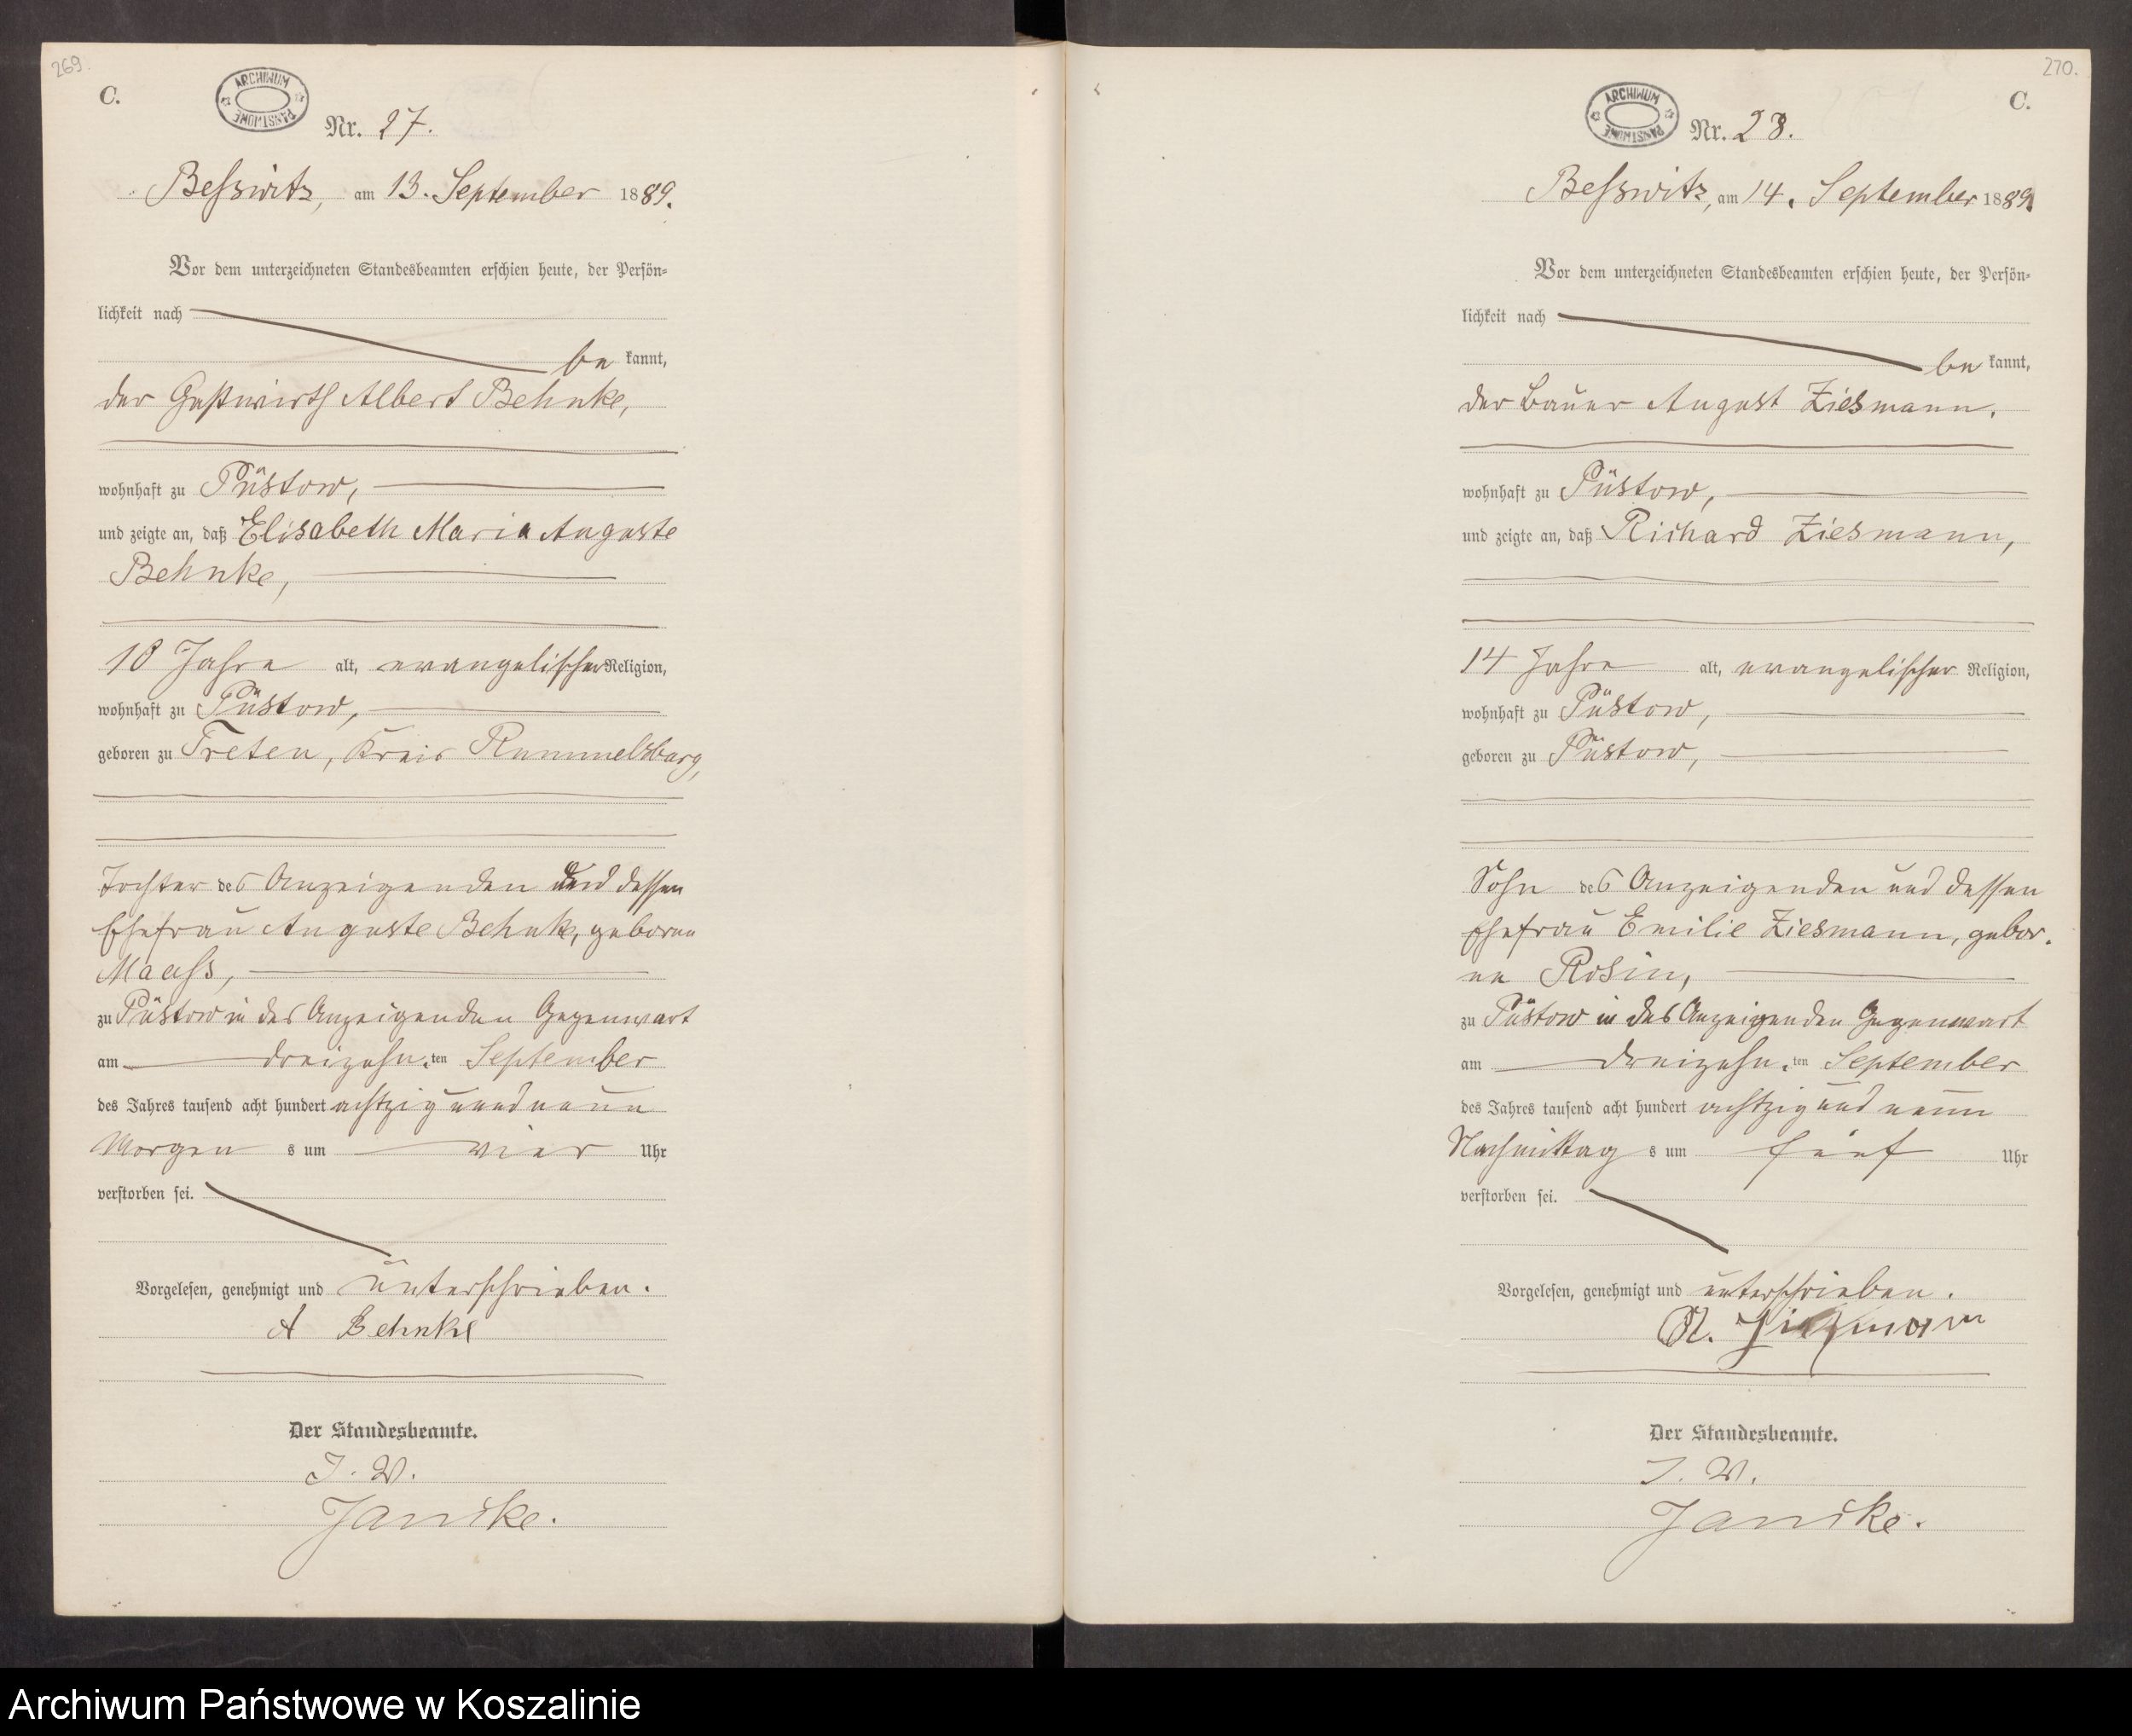 269.
C.
ARCHIWUM PAŃSTWOWE
Nr. 27.
Beßwitz, am 13. September 1889.
Vor dem unterzeichneten Standesbeamten erschien heute, der Persön-
lichkeit nach
be kannt,
der Gastwirth Albert Behnke,
wohnhaft zu Püstow,
und zeigte an, daß Elisabeth Maria Auguste
Behnke,
10 Jahre alt, evangelischer Religion,
wohnhaft zu Püstow,
geboren zu Treten, Kreis Rummelsburg,
Tochter des Anzeigenden und dessen
Ehefrau Auguste Behnke, geborene
Maaß,
zu Püstow in des Anzeigenden Gegenwart
am dreizehn ten September
des Jahres tausend acht hundert achtzig und neun
Morgen s um vier Uhr
verstorben sei.
Vorgelesen, genehmigt und unterschrieben.
A Behnke
Der Standesbeamte.
J. V.
Janike.
270.
C.
ARCHIWUM PAŃSTWOWE
Nr. 28.
Beßwitz, am 14. September 1889.
Vor dem unterzeichneten Standesbeamten erschien heute, der Persön-
lichkeit nach
be kannt,
der Bauer August Ziesmann.
wohnhaft zu Püstow,
und zeigte an, daß Richard Ziesmann,
14 Jahre alt, evangelischer Religion,
wohnhaft zu Püstow,
geboren zu Püstow,
Sohn des Anzeigenden und dessen
Ehefrau Emilie Ziesmann, gebor.
ne Rosin,
zu Püstow in des Anzeigenden Gegenwart
am dreizehn ten September
des Jahres tausend acht hundert achtzig und neun
Nachmittag s um fünf Uhr
verstorben sei.
Vorgelesen, genehmigt und unterschrieben.
A. Ziesmann
Der Standesbeamte.
J. V.
Janike.
Archiwum Państwowe w Koszalinie